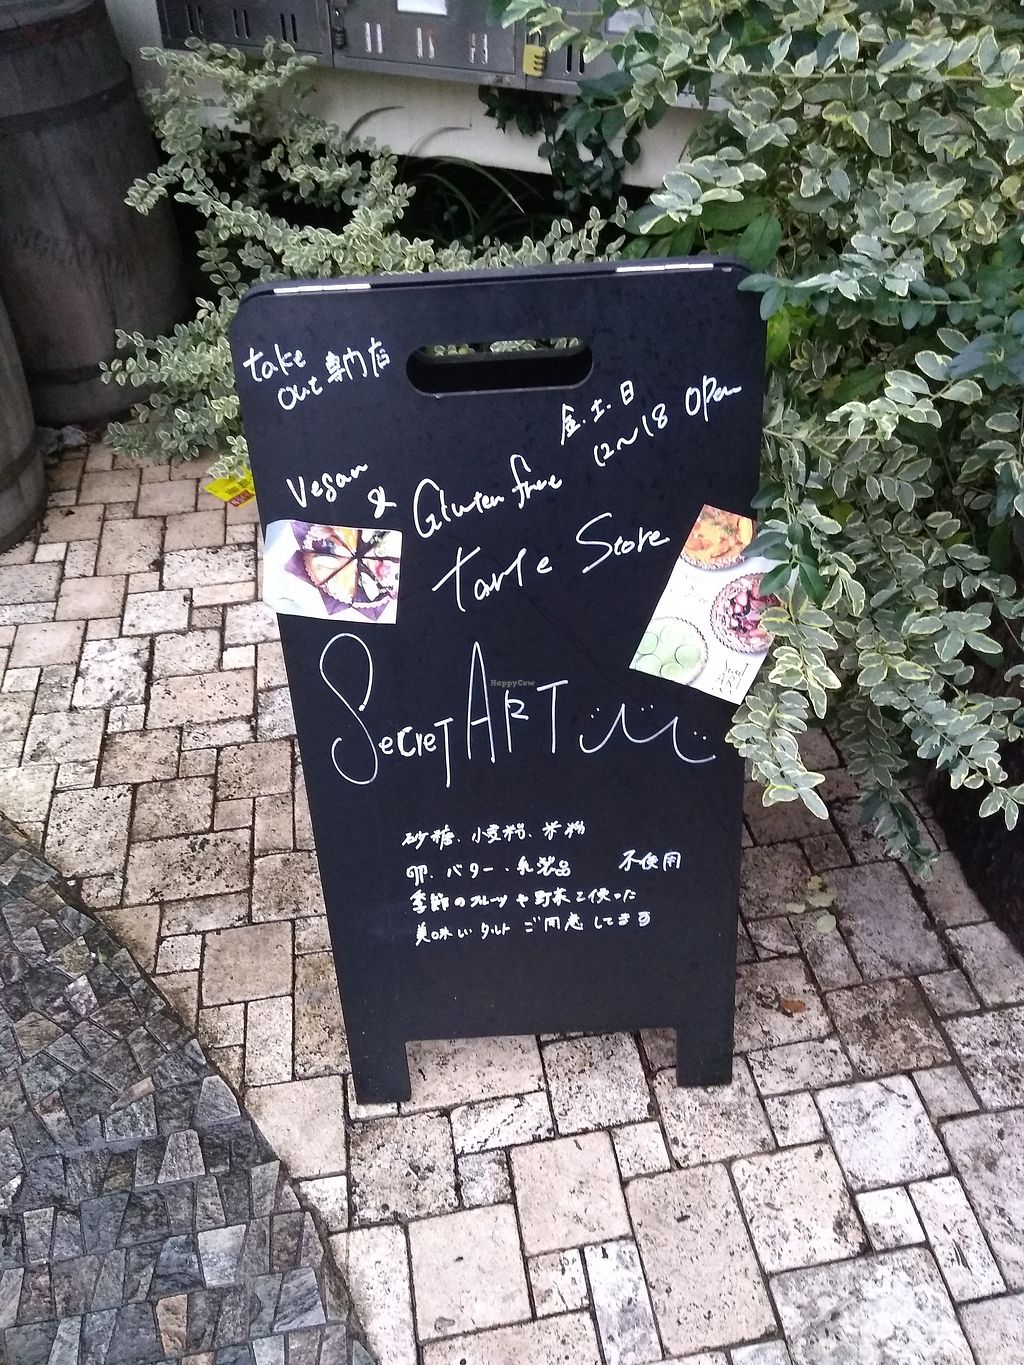 take
out 専門店
金.土.日
12〜18 open
Vegan
& Gluten free
tarte Store
SecreT ART
HappyCow
砂糖、小麦粉、米粉
卵、バター、乳製品 不使用
季節のフルーツや野菜を使った
美味しいタルトご用意してます